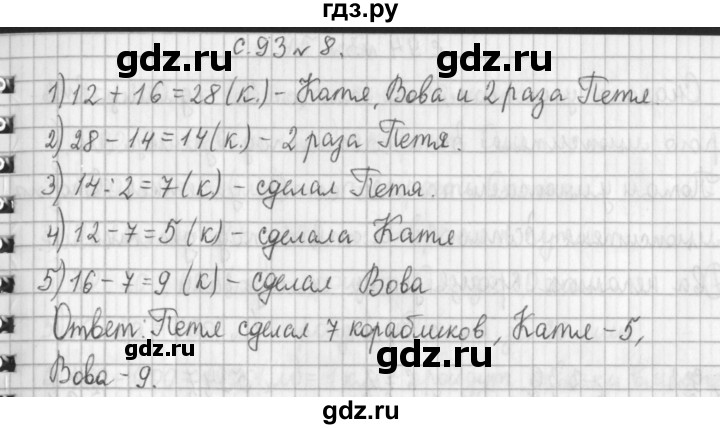 гдз.ру
с. 93 № 8.
gdz.ru gdz.ru gdz.ru
1) 12 + 16 = 28 (к.) - Катя, Вова и 2 раза Петя.
2) 28 - 14 = 14 (к.) - 2 раза Петя.
gdz.ru gdz.ru
3) 14 : 2 = 7 (к) - сделал Петя.
4) 12 - 7 = 5 (к) - сделала Катя
gdz.ru gdz.ru gdz.ru
5) 16 - 7 = 9 (к) - сделал Вова
Ответ: Петя сделал 7 корабликов, Катя - 5,
gdz.ru gdz.ru
Вова - 9.
gdz.ru